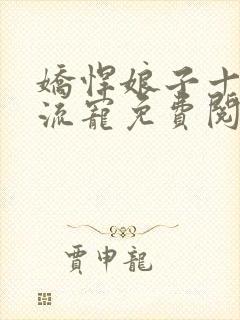 嬌悍娘子十
流寵免費閱
賈申龍